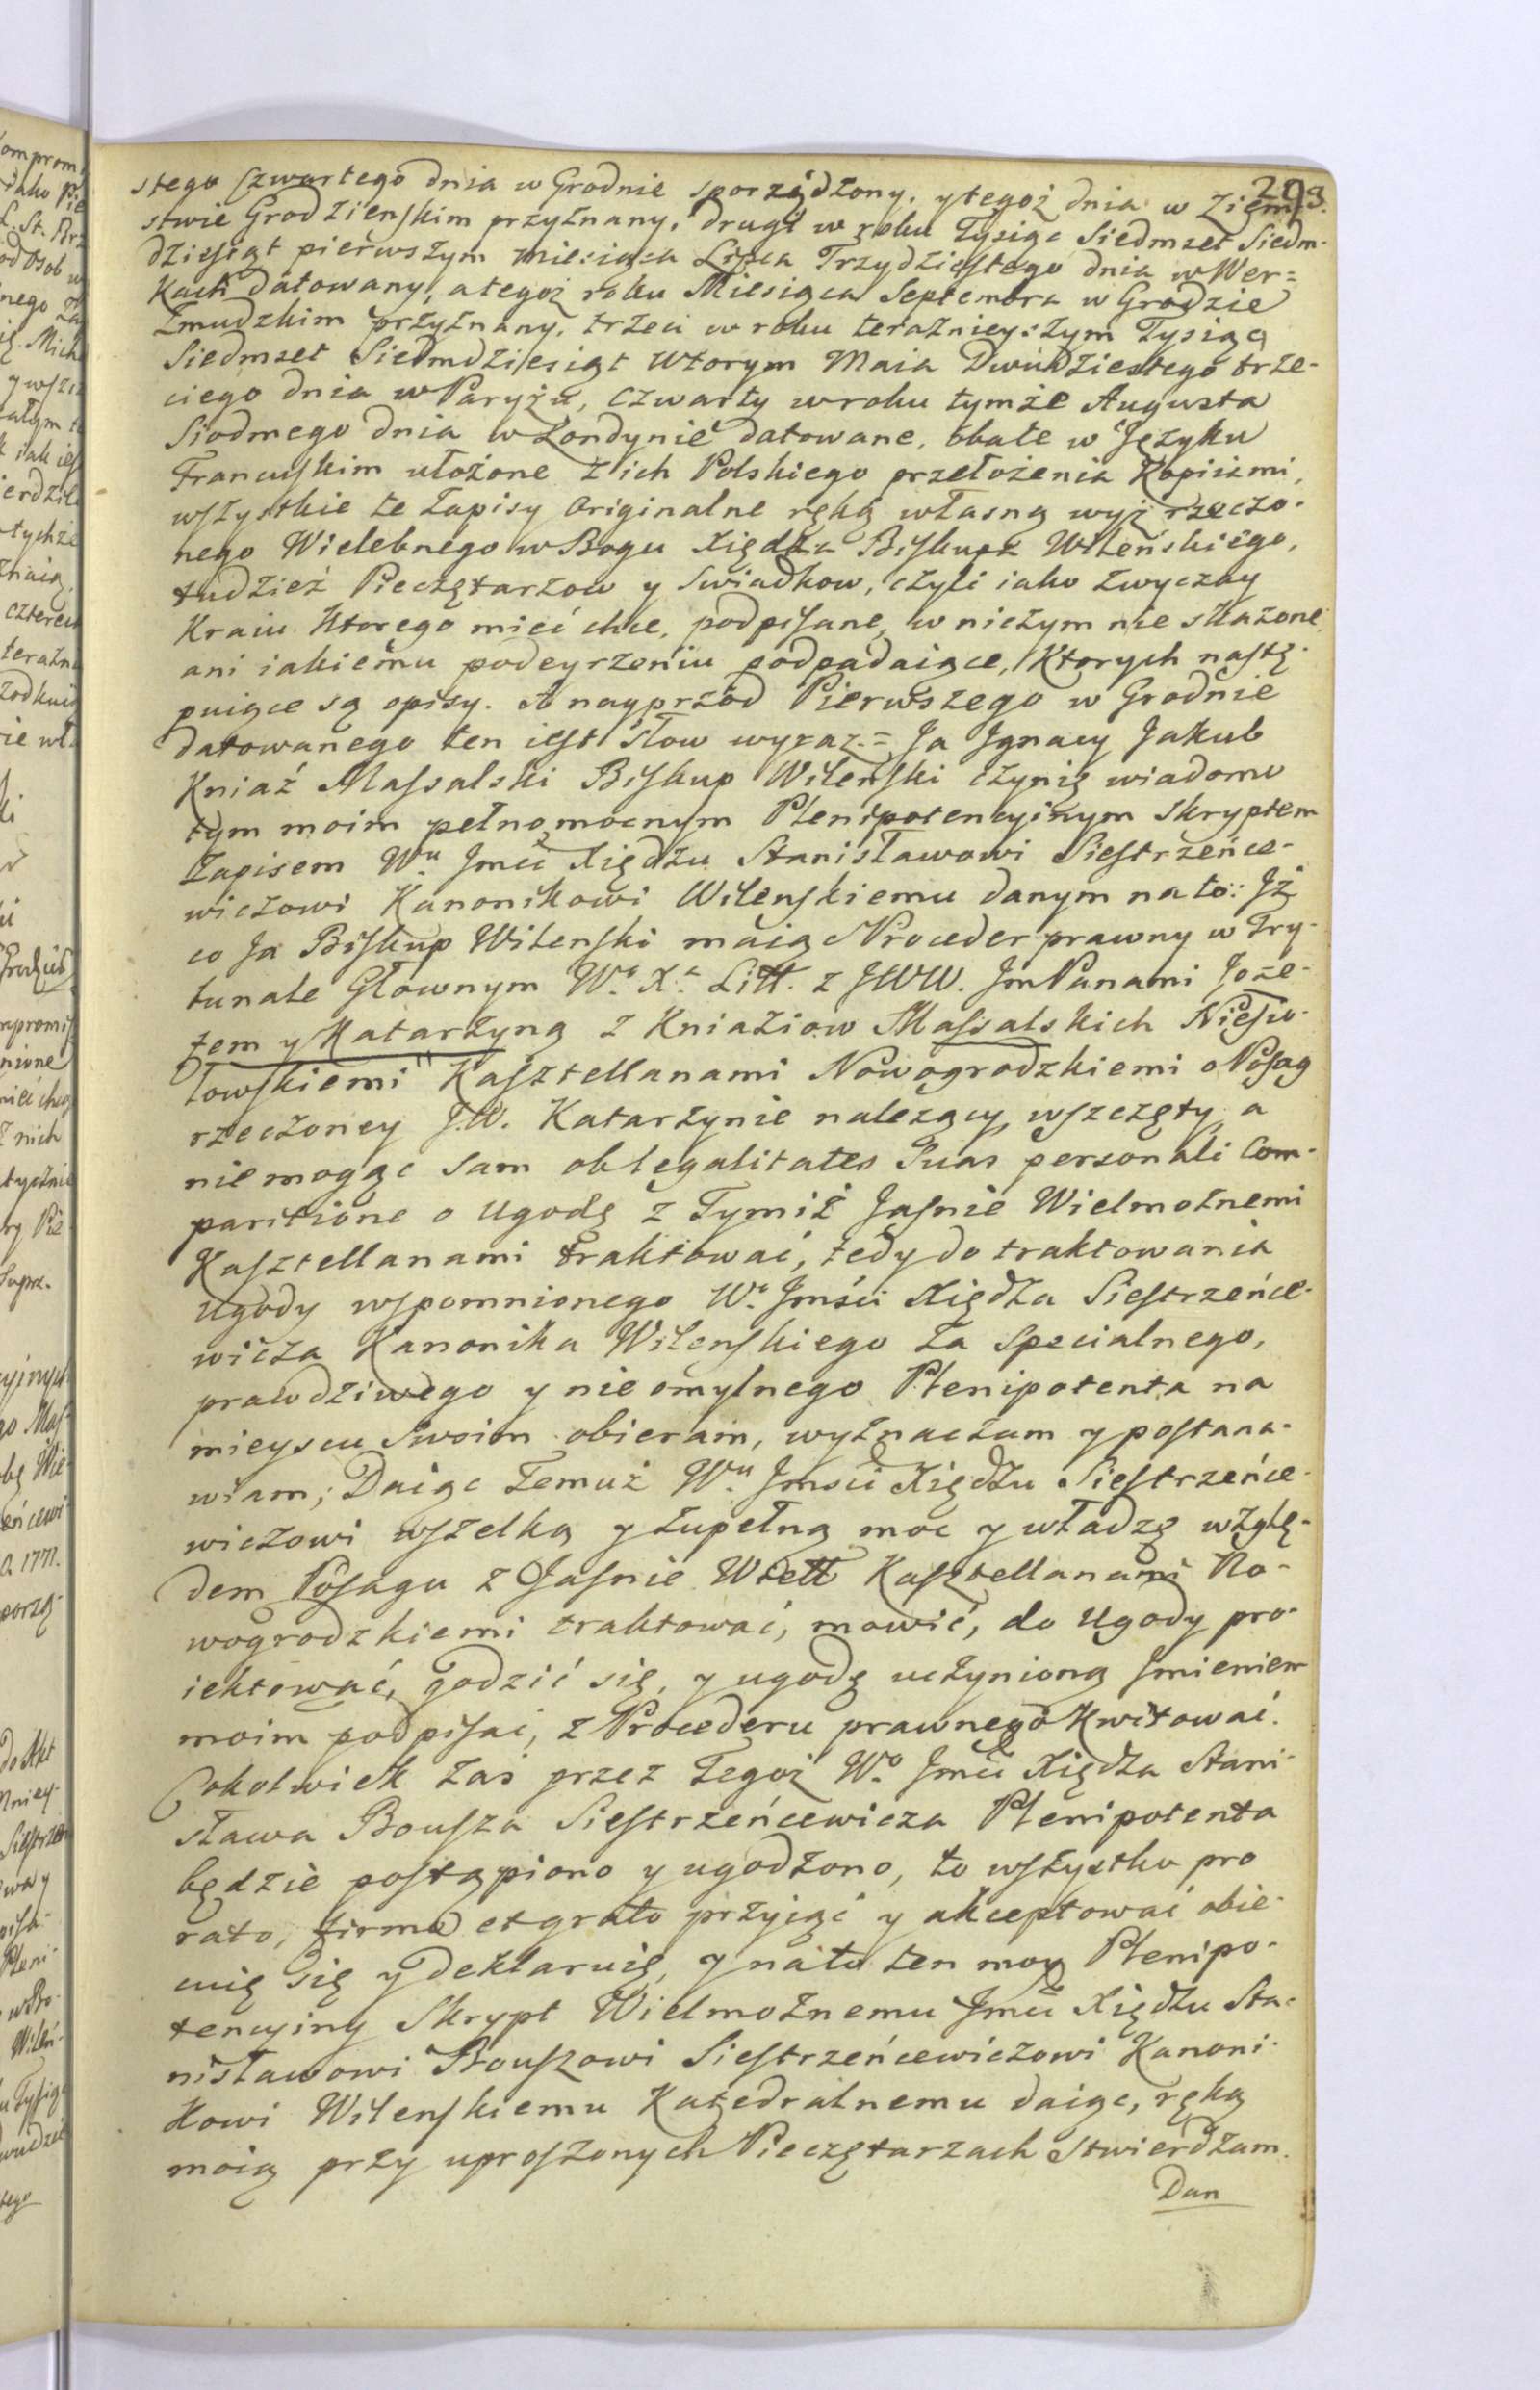 293.
stego Czwartego dnia w Grodnie sporządzony, y tegoż dnia w Ziem-
stwie Grodzienskim przyznany, drugi w roku Tysiąc Siedmset Siedm-
dziesiąt pierwszym miesiąca Lipca Trzydziestego dnia w Wer=
kach datowany, a tegoż roku Miesiąca Septembra w Grodzie
Zmudzkim przyznany, trzeci w roku teraznieyszym Tysiąc
Siedmset Siedmdziesiąt wtorym Maia Dwudziestego trze-
ciego dnia w Paryżu, czwarty w roku tymże Augusta
Siodmego dnia w Londynie datowane, obate w Języku
Francuskim ułożone z ich Polskiego przełożenia Kopiiami,
wszystkie te zapisy Originalne ręką własną wyż rzeczo-
nego Wielebnego w Bogu Xiędza Biskupa Wileńskiego,
tudzież Pieczętarzow y Swiadkow, czyli iako zwyczay
Kraiu ktorego mieć chce, podpisane, w niczym nie skażone
ani iakiemu podeyrzeniu podpadaiące, Ktorych nastę-
puiące są opisy. A nayprzód Pierwszego w Grodnie
datowanego ten iest słow wyraz.= Ja Jgnacy Jakub
Kniaź Massalski Biskup Wilenski czynię wiadomo
tym moim pełnomocnym Plenipotencyinym Skryptem
Zapisem Wu. Jmci Xiędzu Stanisławowi Siestrzeńce-
wiczowi Kanonikowi Wilenskiemu danym na to: Jż
co Ja Biskup Wilenski maiąc Proceder prawny w Try-
bunale Głownym Wo. Xa. Litt. z JWW. Jm Panami Joze-
fem y Katarzyną z Kniaziow Massalskich Niesio-
łowskiemi Kasztellanami Nowogrodzkiemi o Posag
rzeczoney J.W. Katarzynie należący, wszczęty, a
nie mogąc sam ob legalitates Suas personali Com-
paritione o Ugodę z Tymiż Jasnie Wielmożnemi
Kasztellanami traktować, tedy do traktowania
Ugody wspomnionego Wo. Jmści Xiędza Siestrzeńce-
wicza Kanonika Wilenskiego za Specialnego,
prawdziwego y nieomylnego Plenipotenta na
mieyscu Swoim obieram, wyznaczam y postana-
wiam; Daiąc Temuż Wu. Jmsci Xiędzu Siestrzeńce-
wiczowi wszelką y zupełną moc y władzę wzglę-
dem Posagu z Jasnie Wiell Kasztellanami No-
wogrodzkiemi traktować, mowić, do Ugody pro-
iektować, godzić się, y ugodę uczynioną Jmieniem
moim podpisać, z Procederu prawnego Kwitować.
Cokolwiek zaś przez Tegoż Wo. Jmci Xiędza Stani-
sława Bousza Siestrzeńcewicza Plenipotenta
będzie postąpiono y ugodzono, to wszystko pro
rato, firmo et grato przyiąć y akceptować obie-
cuię się y deklaruię, y na to ten moy Plenipo-
tencyiny Skrypt Wielmożnemu Jmci Xiędzu Sta-
nisławowi Bouszowi Siestrzeńcewiczowi Kanoni-
kowi Wilenskiemu Katedralnemu daiąc, ręką
moią przy uproszonych Pieczętarzach stwierdzam.
Dan